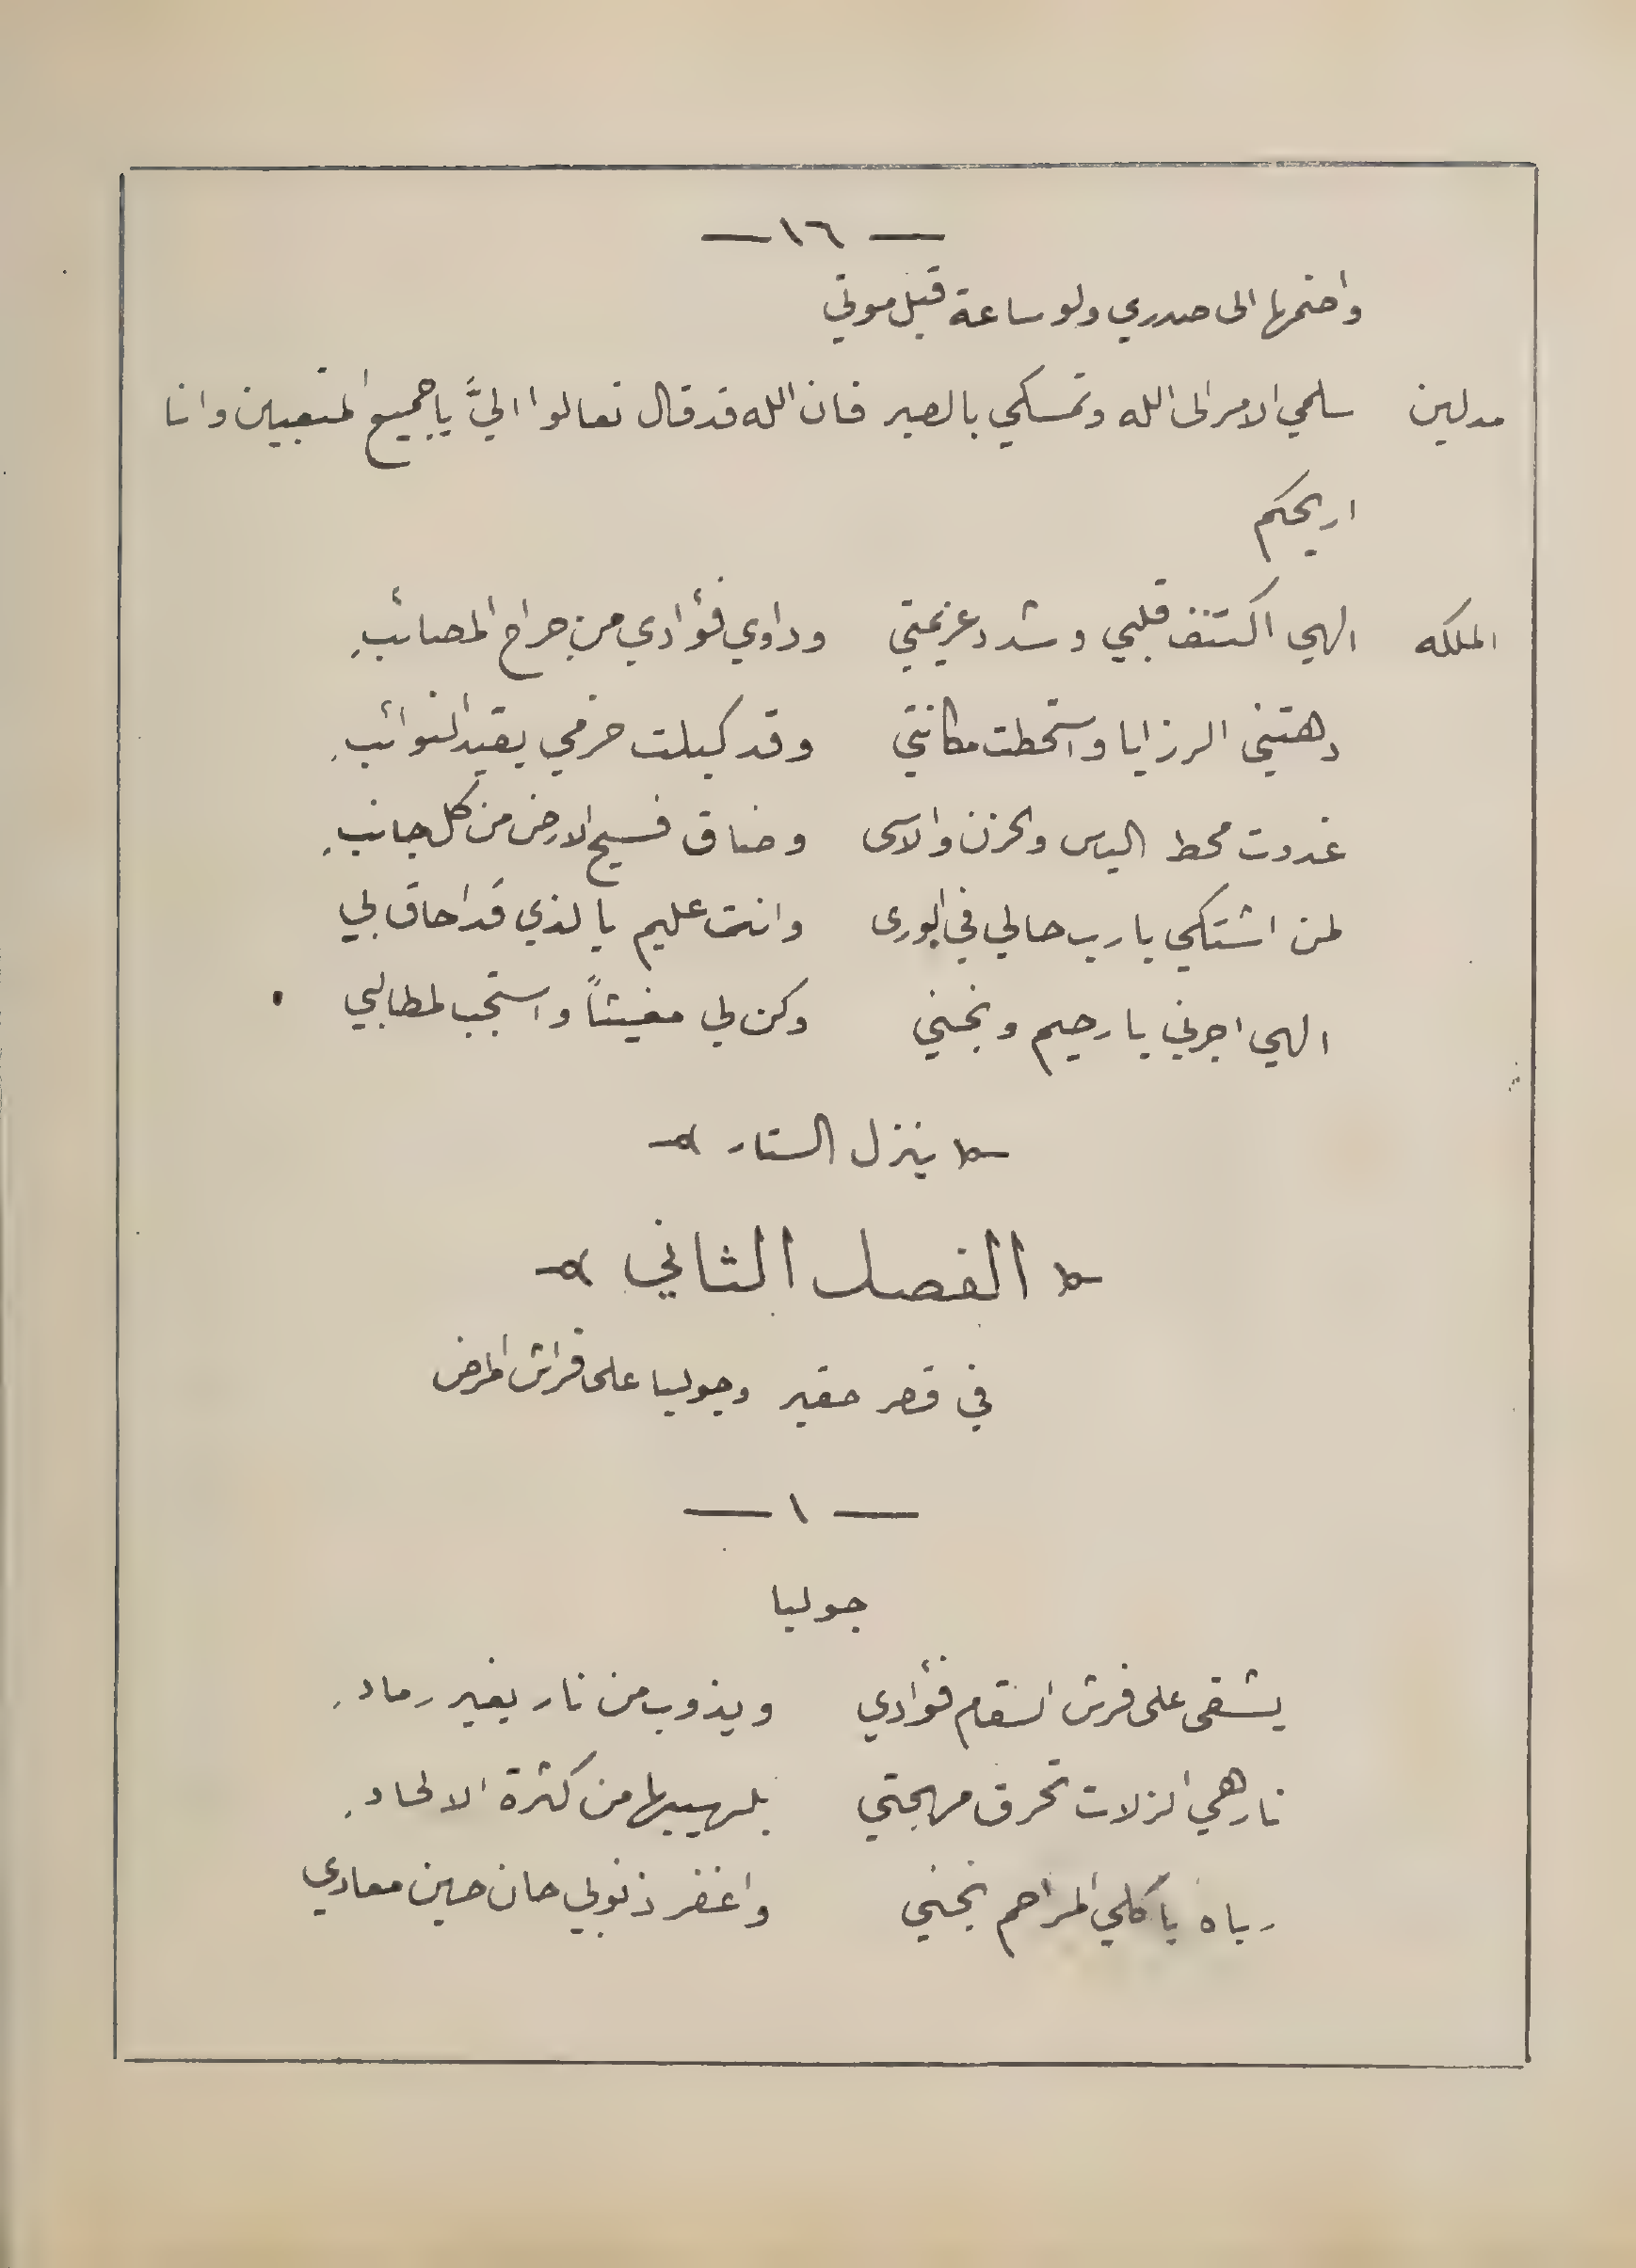 — ١٦ —
واضمها الى صدري ولو ساعة قبل موتي
مدلين سلمي الامر الى الله وتمسكي بالصبر فان الله قد قال تعالوا اليَّ يا جميع المتعبين وانا
اريحكم
الملكه الهي اكتنف قلبي وشدد عزيمتي وداوي فؤادي من جراح المصائبِ
دهتني الرزايا واستحطت مكانتي وقد كبلت حزمي بقيد النوائبِ
غدوت محط اليأس والحزن والاسى وضاق فسيح الارض من كل جانبِ
لمن اشتكي يا رب حالي في الورى وانت عليم بالذي قد احاق بي
الهي اجرني يا رحيم ونجني وكن لي مغيثاً واستجب لمطالبي
ينزل الستار
الفصل الثاني
في قصر حقير وجوليا على فراش المرض
— ١ —
جوليا
يشقى على فرش السقام فؤادي ويذوب من نار بغير رمادِ
نار هي الزلات تحرق مهجتي بلهيبها من كثرة الالحادِ
رباه يا كلي المراحم نجني واغفر ذنوبي حان حين معادي